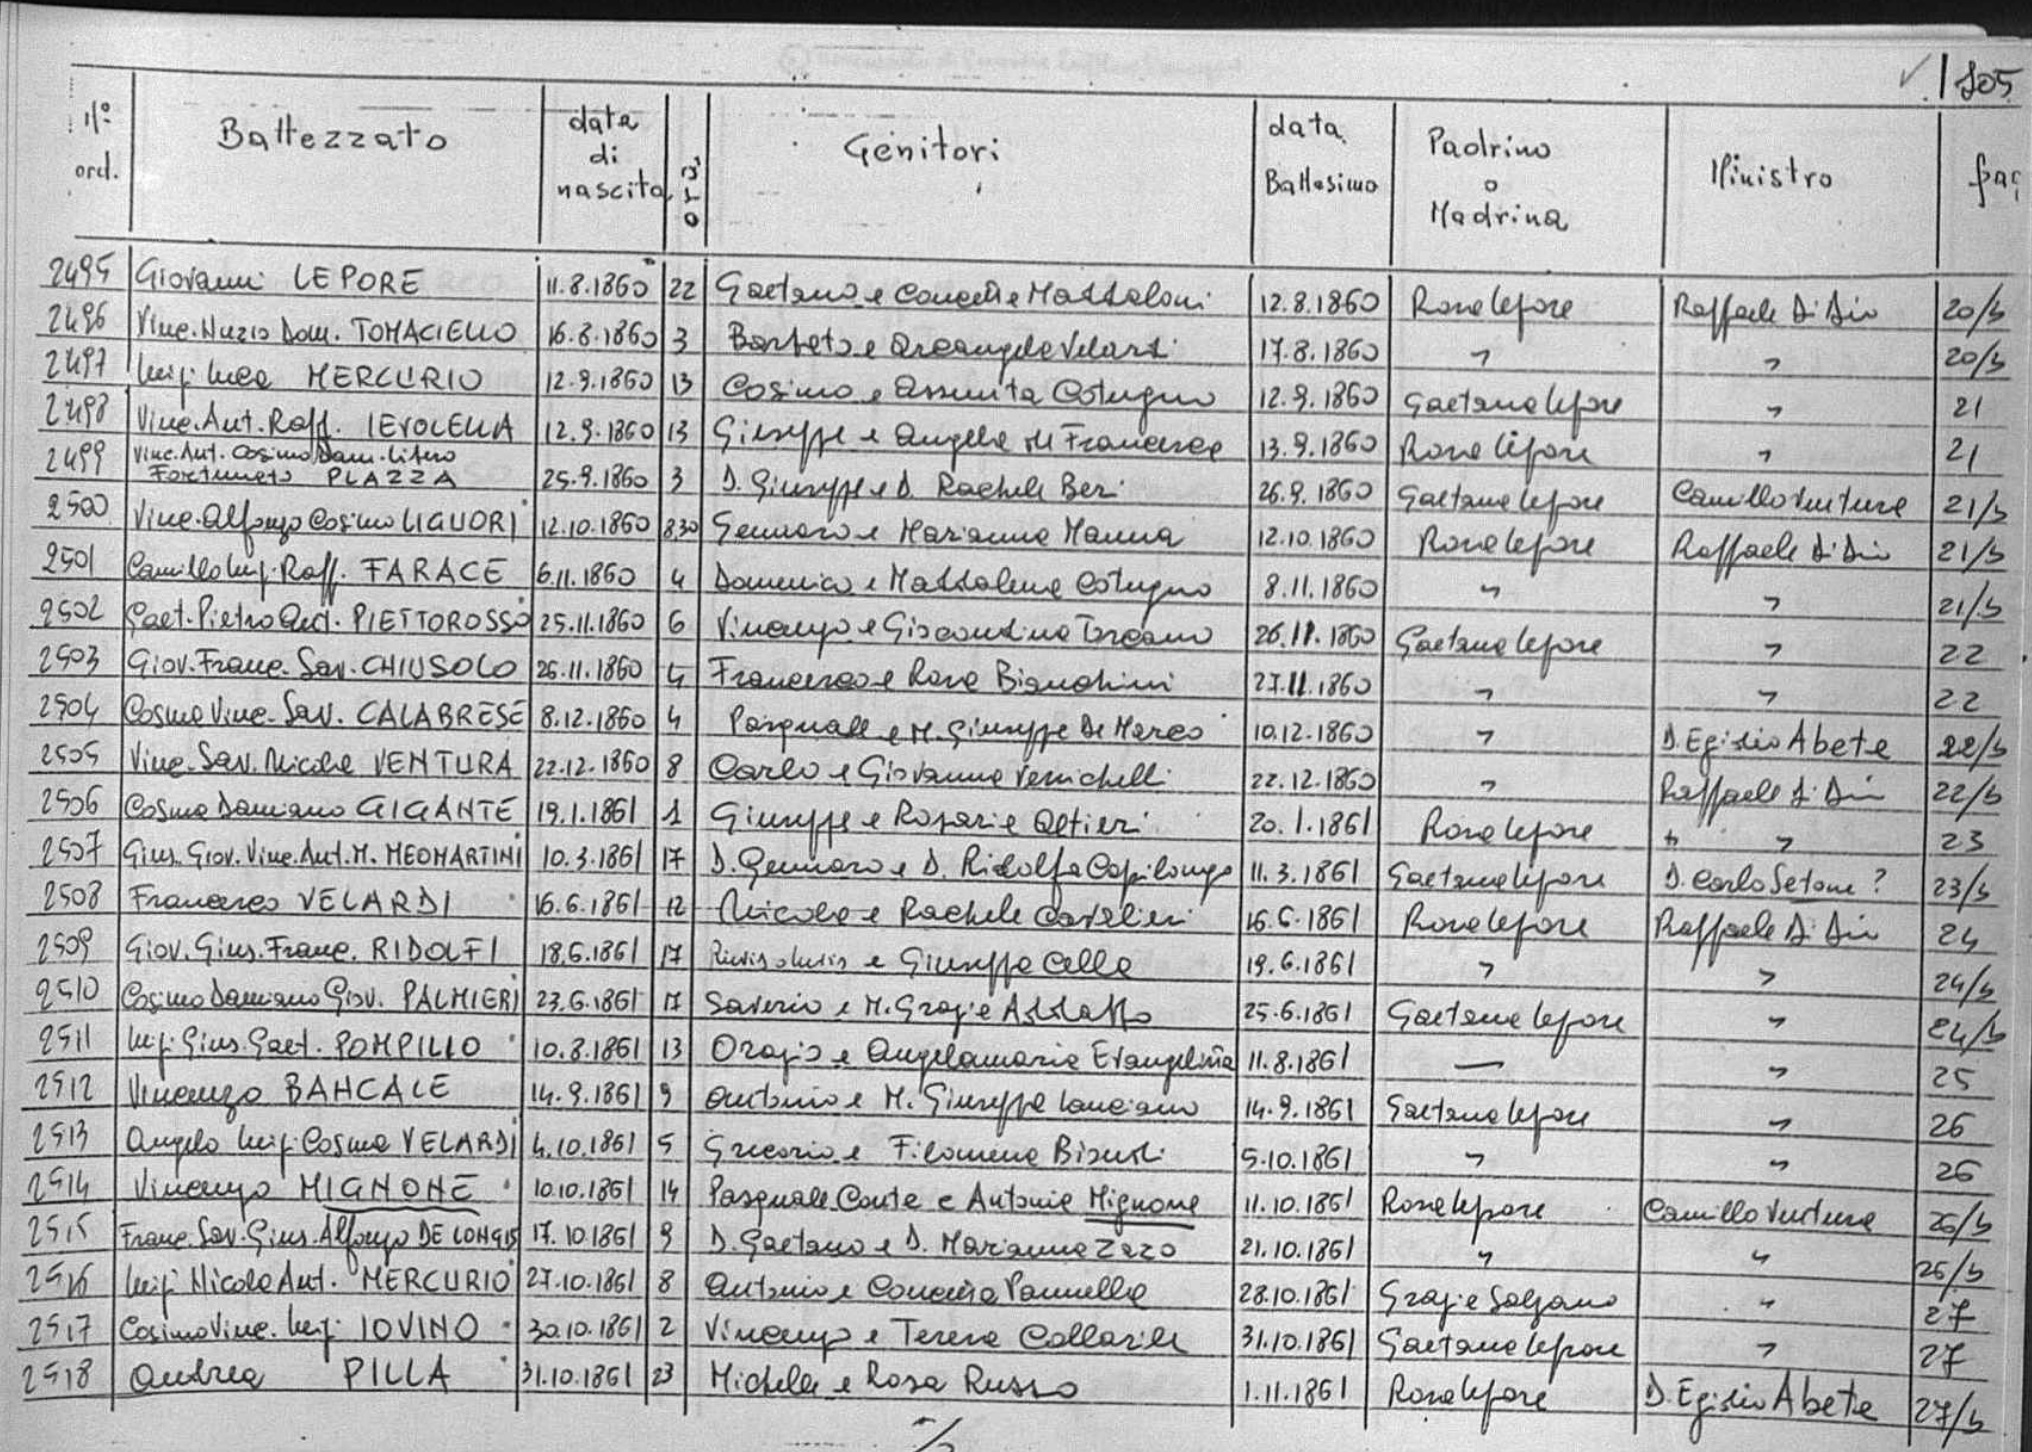 105
N° ord. Battezzato data di nascita ora Genitori data Battesimo Padrino o Madrina Ministro pag
2495 Giovanni LEPORE 11.8.1860 22 Gaetano e Concetta Maddaloni 12.8.1860 Rosa Lepore Raffaele Di Dio 20/b
2496 Vinc. Nuzio Dom. TOMACIELLO 16.8.1860 3 Barbato e Arcangela Velardi 17.8.1860 " " 20/b
2497 Luigi Luca MERCURIO 12.9.1860 13 Cosimo e Assunta Cotugno 12.9.1860 Gaetana Lepore " 21
2498 Vinc. Ant. Raff. IEVOLELLA 12.9.1860 13 Giuseppe e Angela di Francesco 13.9.1860 Rosa Lepore " 21
2499 Vinc. Ant. Cosimo Dam. Libero
Fortunato PLAZZA 25.9.1860 3 D. Giuseppe e D. Rachele Beri 26.9.1860 Gaetana Lepore Camillo Ventura 21/b
2500 Vinc. Alfonzo Cosimo LIGUORI 12.10.1860 8,30 Gennaro e Marianna Manna 12.10.1860 Rosa Lepore Raffaele Di Dio 21/b
2501 Camillo Luigi Raff. FARACE 6.11.1860 4 Domenico e Maddalena Cotugno 8.11.1860 " " 21/b
2502 Gaet. Pietro And. PIETTOROSSO 25.11.1860 6 Vincenzo e Giocondina Torcano 26.11.1860 Gaetana Lepore " 22
2503 Giov. Franc. Sav. CHIUSOLO 26.11.1860 4 Francesco e Rosa Bianchini 27.11.1860 " " 22
2504 Cosma Vinc. Sav. CALABRESE 8.12.1860 4 Pasquale e M. Giuseppa De Marco 10.12.1860 " D. Egidio Abete 22/b
2505 Vinc. Sav. Nicola VENTURA 22.12.1860 8 Carlo e Giovanna Vernichelli 22.12.1860 " Raffaele Di Dio 22/b
2506 Cosma Damiano GIGANTE 19.1.1861 1 Giuseppe e Rosaria Altieri 20.1.1861 Rosa Lepore " " 23
2507 Gius. Giov. Vinc. Ant. M. MEOMARTINI 10.3.1861 17 D. Gennaro e D. Ridolfa Capilongo 11.3.1861 Gaetana Lepore D. Carlo Setone ? 23/b
2508 Francesco VELARDI 16.6.1861 12 Nicola e Rachele Cavalieri 16.6.1861 Rosa Lepore Raffaele Di Dio 24
2509 Giov. Gius. Franc. RIDOLFI 18.6.1861 17 e Giuseppa Calla 19.6.1861 " " 24/b
2510 Cosimo Damiano Giov. PALMIERI 23.6.1861 17 Saverio e M. Grazia Addaffo 25.6.1861 Gaetana Lepore " 24/b
2511 Luigi Gius. Gaet. POMPILIO 10.8.1861 13 Orazio e Angelamaria Evangelista 11.8.1861 — " 25
2512 Vincenzo BANCALE 14.9.1861 9 Antonio e M. Giuseppa Lanciano 14.9.1861 Gaetana Lepore " 26
2513 Angelo Luigi Cosma VELARDI 4.10.1861 5 Gregorio e Filomena Bisusti 5.10.1861 " " 26
2514 Vincenzo MIGNONE 10.10.1861 14 Pasquale Conte e Antonia Mignone 11.10.1861 Rosa Lepore Camillo Ventura 26/b
2515 Franc. Sav. Gius. Alfonzo DE LONGIS 17.10.1861 9 D. Gaetano e D. Marianna Zazo 21.10.1861 " " 26/b
2516 Luigi Nicola Ant. MERCURIO 27.10.1861 8 Antonio e Concetta Pannella 28.10.1861 Grazia Salzano " 27
2517 Cosimo Vinc. Luigi IOVINO 30.10.1861 2 Vincenzo e Teresa Collarile 31.10.1861 Gaetana Lepore " 27
2518 Andrea PILLA 31.10.1861 23 Michele e Rosa Russo 1.11.1861 Rosa Lepore D. Egidio Abete 27/b